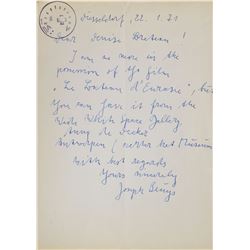 Düsseldorf, 22. 1. 71
Dear Denise Breteau!
I am no more in the
possession of the film
"Le Bateau d'Eurasie", but
you can have it from the
Wide White Space Gallery
Anny de Decker
Antwerpen (vertez het Museum
With best regards
Yours sincerely
Joseph Beuys